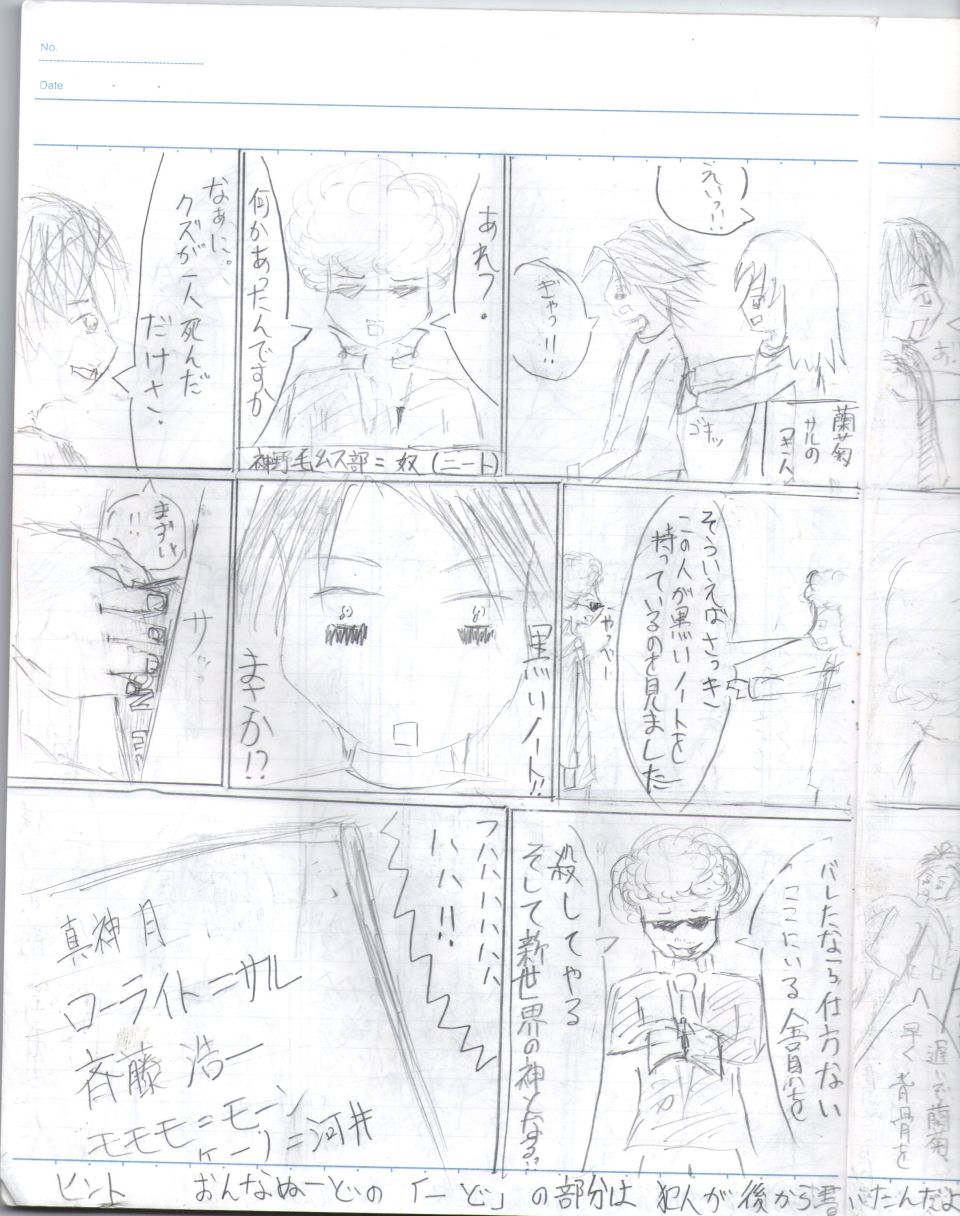 No.
Date
えいっ!!
ぎゃっ!!
ゴキッ
蘭菊
サルの
あれ?
何かあったんですか
神野毛ムス部=奴(ニート)
なぁに。
クズが一人死んだ
だけさ。
そういえばさっき
この人が黒いノートを
持っているのを見ました
黒いノート!!
まさか!?
サッ
まずい
!!
バレたなら仕方ない
ここにいる全員を
殺してやる
そして新世界の神となる!!
フハハハハハハ
ハハ!!
真神 月
ローライト=サル
斉藤 浩一
モモモ=モーン
ケーリ=河井
遅いぞ蘭菊、
早く背骨を
ヒント おんなぬーどの「ーど」の部分は 犯人が後から書いたんだよ